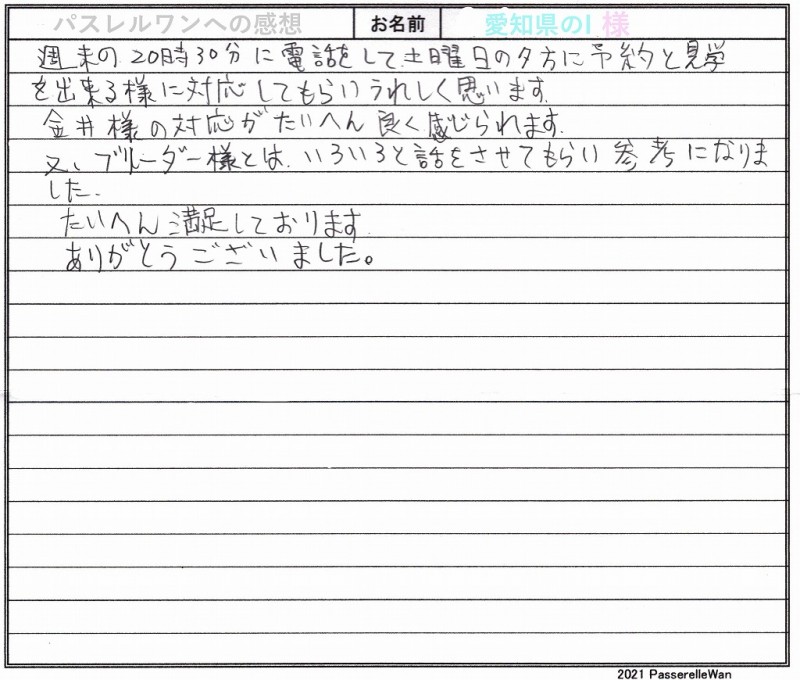 パスレルワンへの感想 お名前 愛知県のI 様
週末の 20時30分に電話をして 土曜日の夕方に予約と見学
を出来る様に対応してもらいうれしく思います.
金井様の対応がたいへん良く感じられます.
又、ブリーダー様とは、いろいろと話をさせてもらい参考になりま
した.
たいへん満足しております.
ありがとうございました。
2021 PasserelleWan